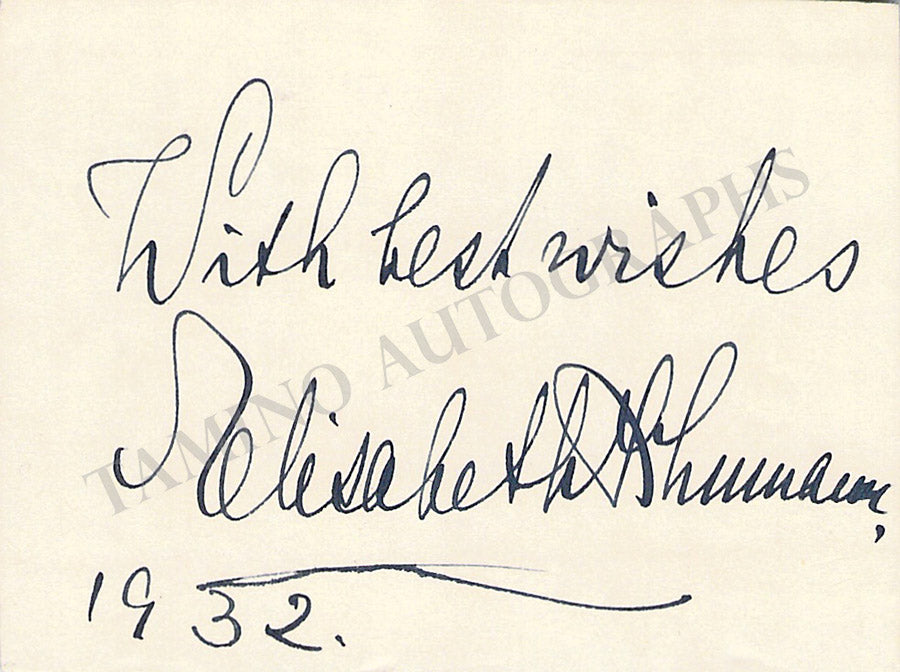 With best wishes
Elisabeth Schumann,
1932.
TAMINO AUTOGRAPHS